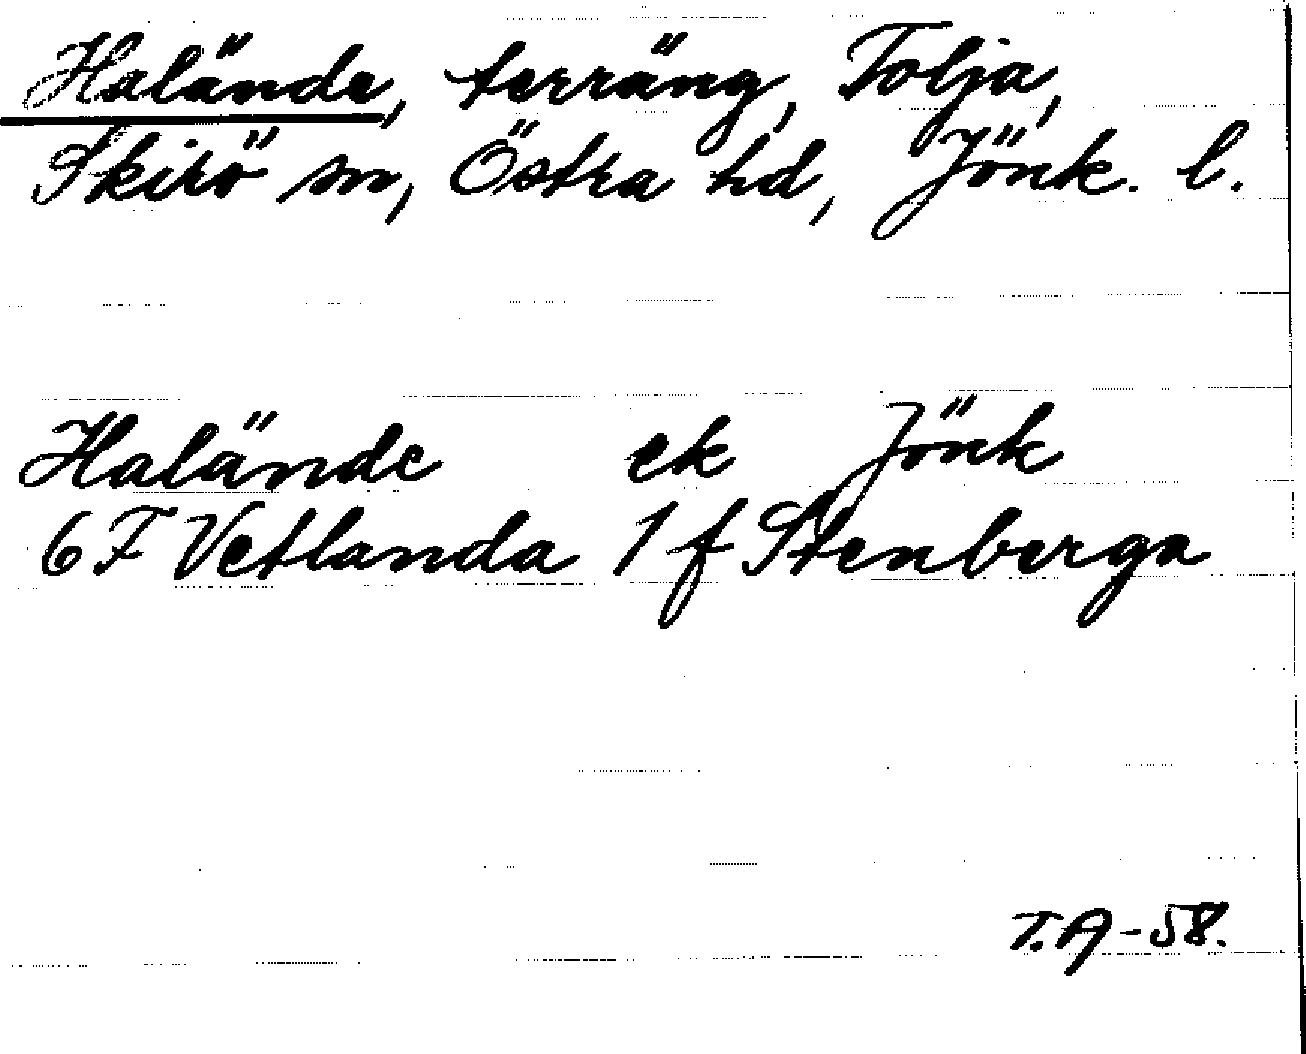 Halände, terräng, Tolja,
Skirö sn, Östra hd, Jönk. l.
Halände ek Jönk
6F Vetlanda 1 f Stenberga
T.A-58.